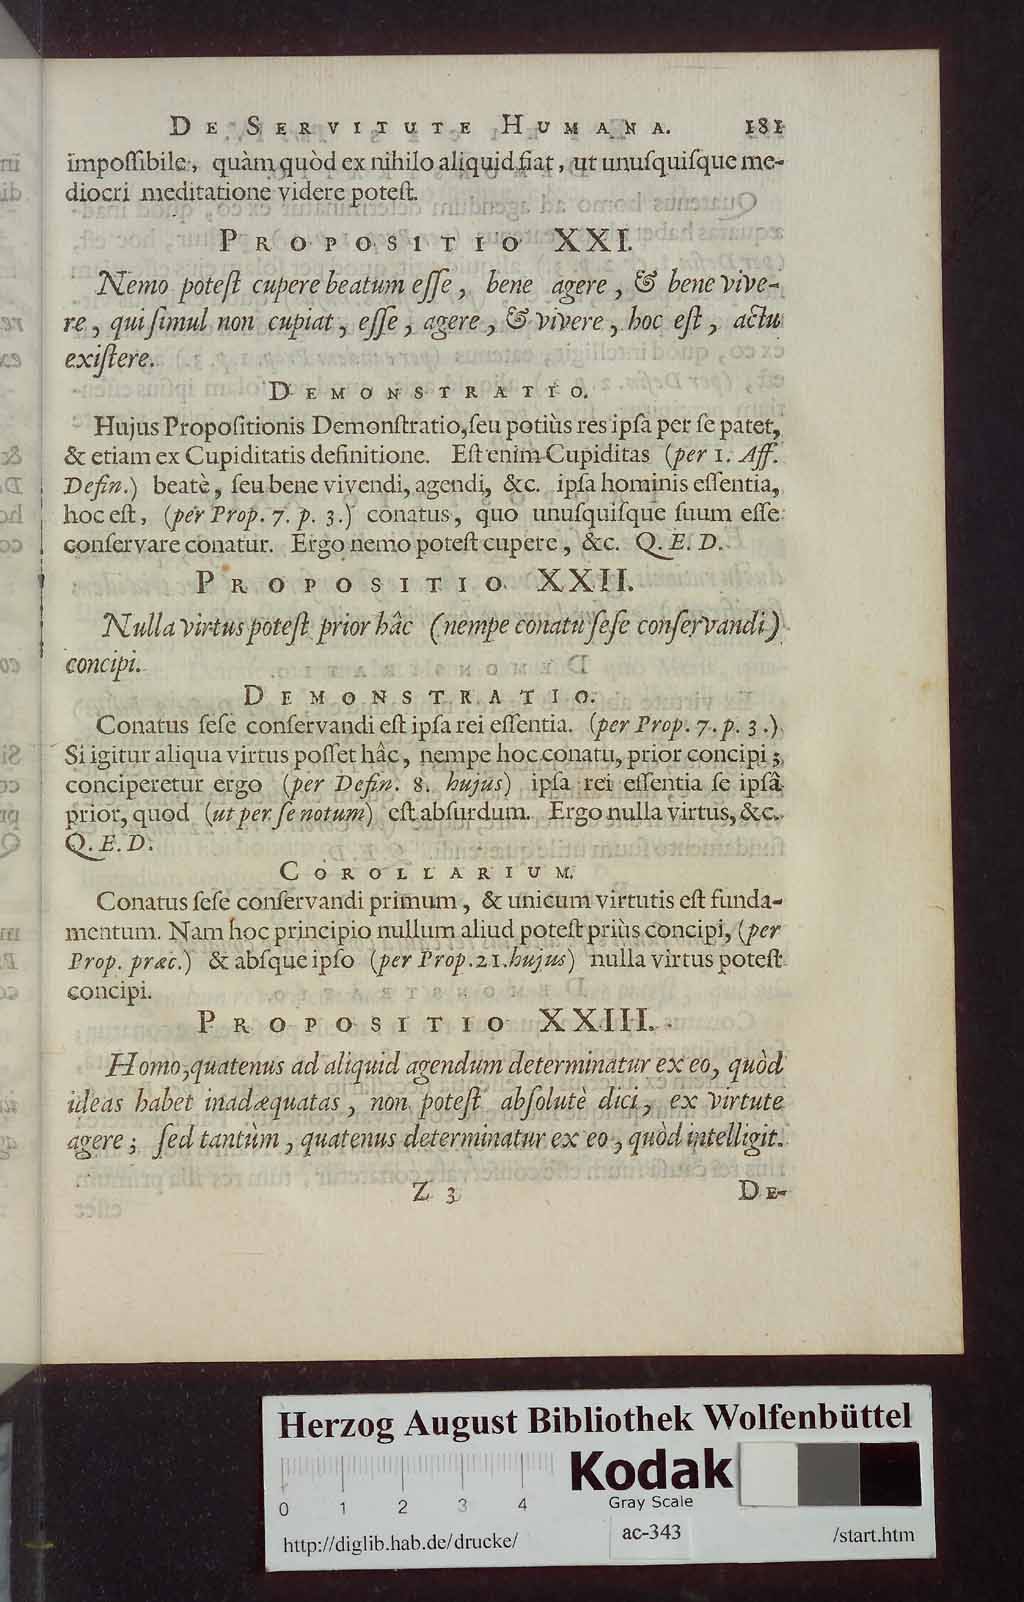 DE SERVITUTE HUMANA. 181
impoſſibile, quàm quòd ex nihilo aliquid fiat, ut unuſquiſque me-
diocri meditatione videre poteſt.
PROPOSITIO XXI.
Nemo poteſt cupere beatum eſſe, bene agere, & bene vive-
re, qui ſimul non cupiat, eſſe, agere, & vivere, hoc eſt, actu
exiſtere.
DEMONSTRATIO.
Hujus Propoſitionis Demonſtratio, ſeu potiùs res ipſa per ſe patet,
& etiam ex Cupiditatis definitione. Eſt enim Cupiditas (per 1. Aff.
Defin.) beatè, ſeu bene vivendi, agendi, &c. ipſa hominis eſſentia,
hoc eſt, (per Prop. 7. p. 3.) conatus, quo unuſquiſque ſuum eſſe
conſervare conatur. Ergo nemo poteſt cupere, &c. Q. E. D.
PROPOSITIO XXII.
Nulla virtus poteſt prior hâc (nempe conatu ſeſe conſervandi)
concipi.
DEMONSTRATIO.
Conatus ſeſe conſervandi eſt ipſa rei eſſentia. (per Prop. 7. p. 3.)
Si igitur aliqua virtus poſſet hâc, nempe hoc conatu, prior concipi;
conciperetur ergo (per Defin. 8. hujus) ipſa rei eſſentia ſe ipsâ
prior, quod (ut per ſe notum) eſt abſurdum. Ergo nulla virtus, &c.
Q. E. D.
COROLLARIUM.
Conatus ſeſe conſervandi primum, & unicum virtutis eſt funda-
mentum. Nam hoc principio nullum aliud poteſt priùs concipi, (per
Prop. præc.) & abſque ipſo (per Prop. 21. hujus) nulla virtus poteſt
concipi.
PROPOSITIO XXIII.
Homo, quatenus ad aliquid agendum determinatur ex eo, quòd
ideas habet inadæquatas, non poteſt abſolutè dici, ex virtute
agere; ſed tantùm, quatenus determinatur ex eo, quòd intelligit.
Z 3 DE-
Herzog August Bibliothek Wolfenbüttel
Kodak
Gray Scale
0 1 2 3 4
http://diglib.hab.de/drucke/ ac-343 /start.htm